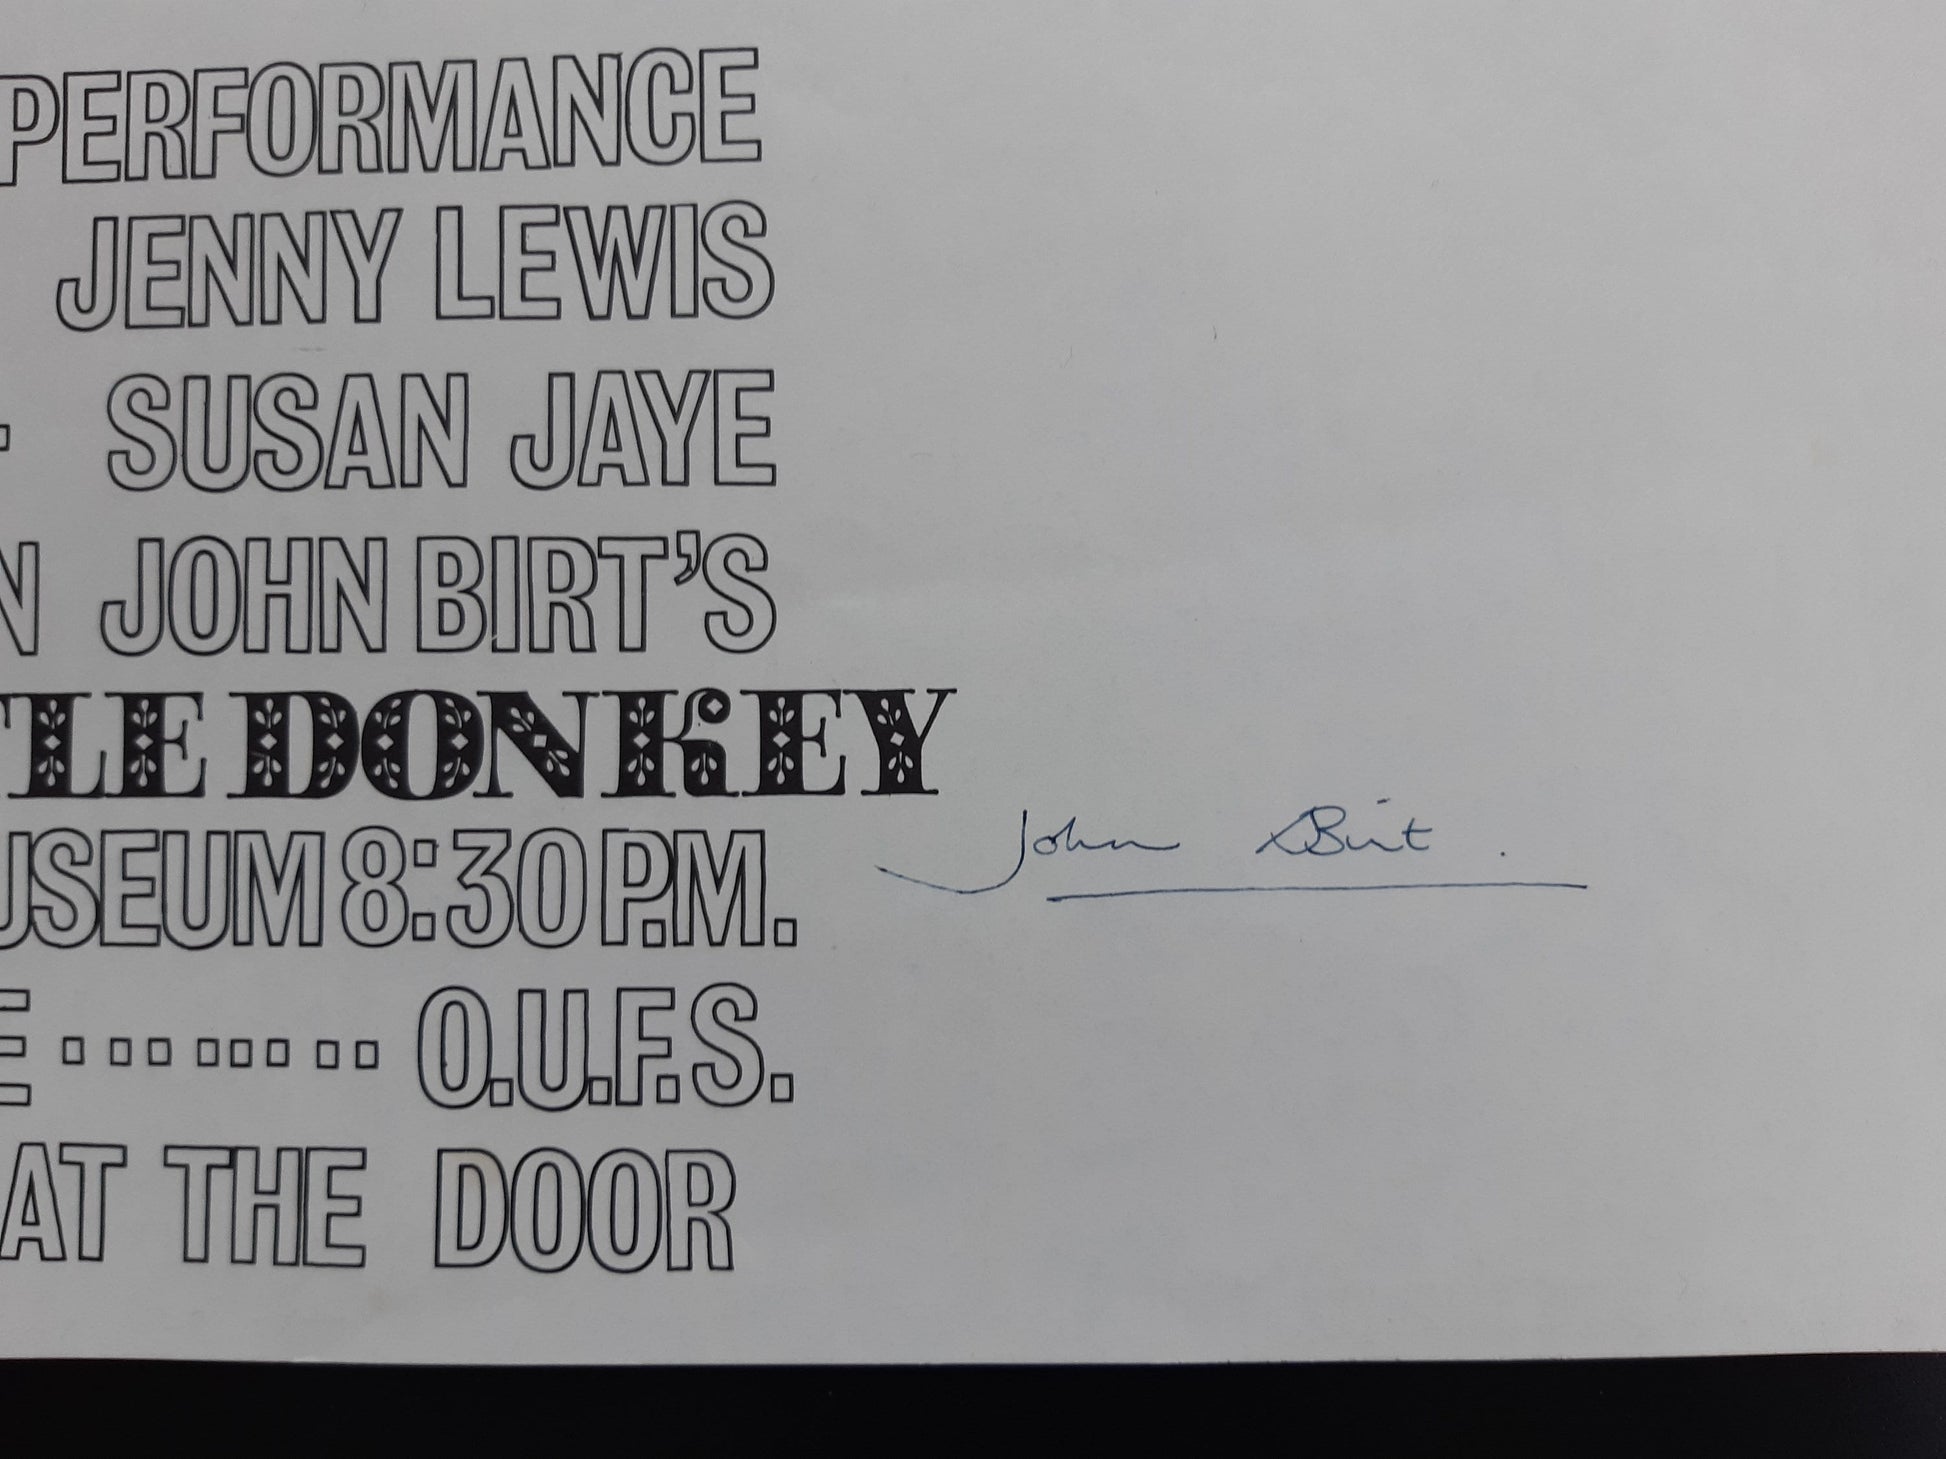 PERFORMANCE
JENNY LEWIS
SUSAN JAYE
N JOHN BIRT'S
TLE DONKEY
John Birt.
USEUM 8:30 P.M.
E ......... O.U.F.S.
AT THE DOOR